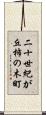 二十世紀が
丘柿の木町